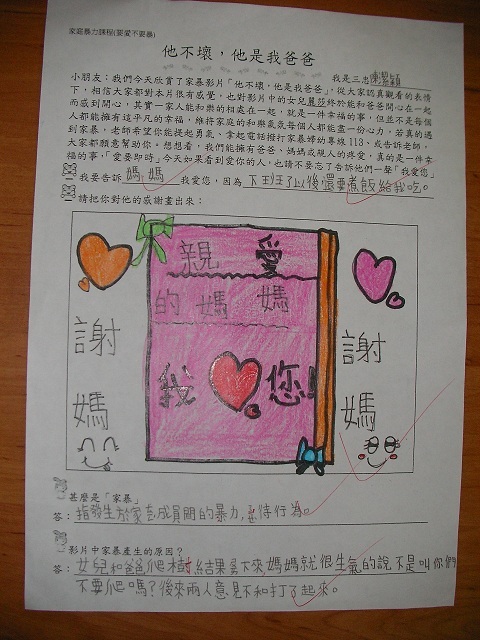 家庭暴力課程(要愛不要暴)
他不壞，他是我爸爸
小朋友：我們今天欣賞了家暴影片「他不壞，他是我爸爸」，從大家認真觀看的表情
我是三忠
下，相信大家都對本片很有感覺，也對影片中的女兒麗莎終於能和爸爸開心在一起
而感到開心，其實一家人能和樂的相處在一起，就是一件幸福的事，但並不是每個
人都能擁有這平凡的幸福，維持家庭的和樂氣氛每個人都能盡一份心力，若真的遇
到家暴，老師希望你能提起勇氣，拿起電話撥打家暴婦幼專線113、或告訴老師，
大家都願意幫助你。想想看，我們能擁有爸爸、媽媽或親人的疼愛，真的是一件幸
福的事，「愛要即時」今天如果看到愛你的人，也請不要忘了告訴他們一聲「我愛您」
我要告訴 媽媽 我愛您，因為 下班了以後還要煮飯給我吃。
請把你對他的感謝畫出來：
親 愛
的 媽 媽
我 您!
謝
媽
謝
媽
甚麼是「家暴」
答：指發生於家庭成員間的暴力，虐待行為。
影片中家暴產生的原因？
答：女兒和爸爸爬樹，結果下來，媽媽就很生氣的說不是叫你們
不要爬嗎？後來兩人意見不和打了起來。